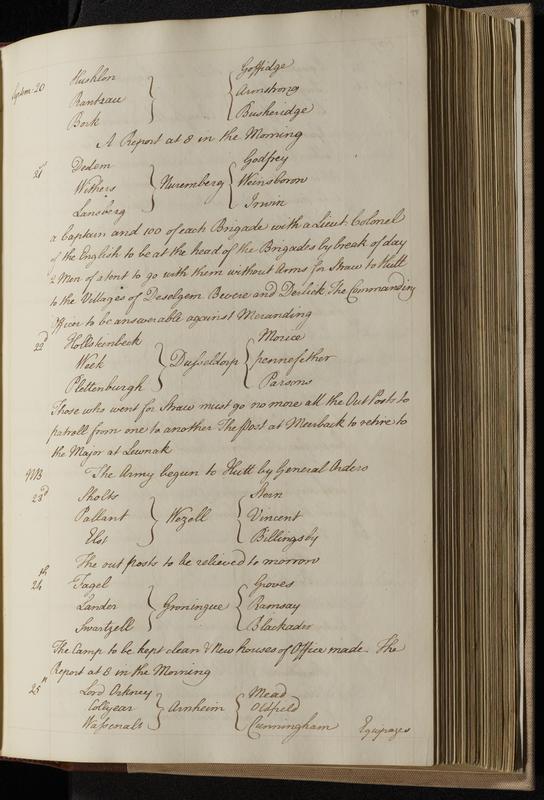 Septem: 20 Hushlon } { Goffidge
Rantzau } { Armstrong
Bork } { Buskeridge
A Report at 8 in the Morning
21st Dedem } { Godfrey
Withers } Nuremberg { Weinsboron
Lansberg } { Irwin
a Captain and 100 of each Brigade with a Lieut Colonel
of the English to be at the head of the Brigades by break of day
2 Men of a tent to go with them without Arms for Straw to Hutt
to the Villages of Desolgem Bevere and Derlick The Commanding
Officer to be answerable against Merauding
22d Hollstenbeck } { Morice
Week } Dusseldorp { pennefether
Plettenburgh } { Parsons
Those who went for Straw must go no more all the Out Posts to
patroll from one to another The post at Meerback to retire to
the Major at Lewnak
NB The Army begun to Hutt by General Orders
23d Sholts } { Stern
Pallant } Wezell { Vincent
Elst } { Billingsby
The out posts to be relieved to morrow
24th Fagel } { Groves
Lander } Groningue { Ramsay
Swartzell } { Blackader
The Camp to be kept clean & New houses of Office made The
Report at 8 in the Morning
25th Lord Orkney } { Mead
Collyear } Arnheim { Oldfield
Wassenals } { Cunningham
Equipages